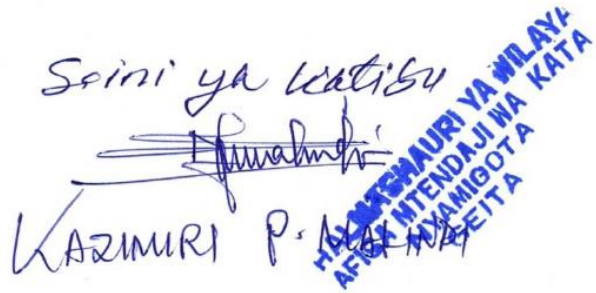 Saini ya Katibu
KAZIMIRI P. MAKINDI
HALMASHAURI YA WILAYA
AFISA MTENDAJI WA KATA
NYAMIGOTA
GEITA